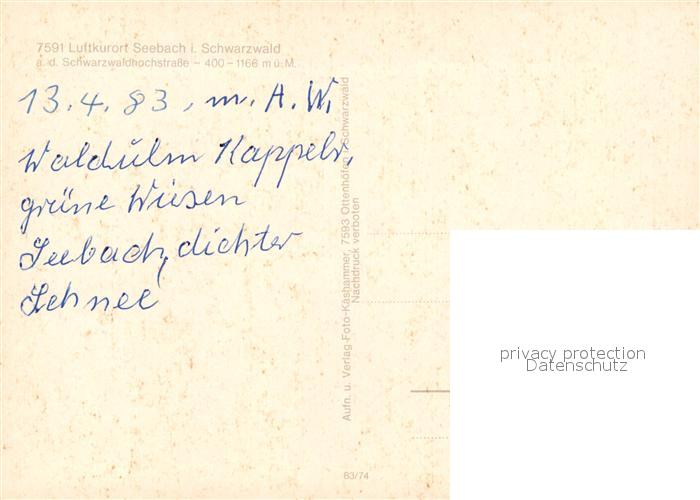 7591 Luftkurort Seebach i. Schwarzwald
a. d. Schwarzwaldhochstraße – 400 – 1166 m ü. M.
13.4.83, m. A. W.
Waldulm Kappelr,
grüne Wiesen
Seebach, dichter
Schnee
Aufn. u. Verlag Foto-Kashammer, 7593 Ottenhöfen i. Schwarzwald
Nachdruck verboten
83/74
privacy protection
Datenschutz